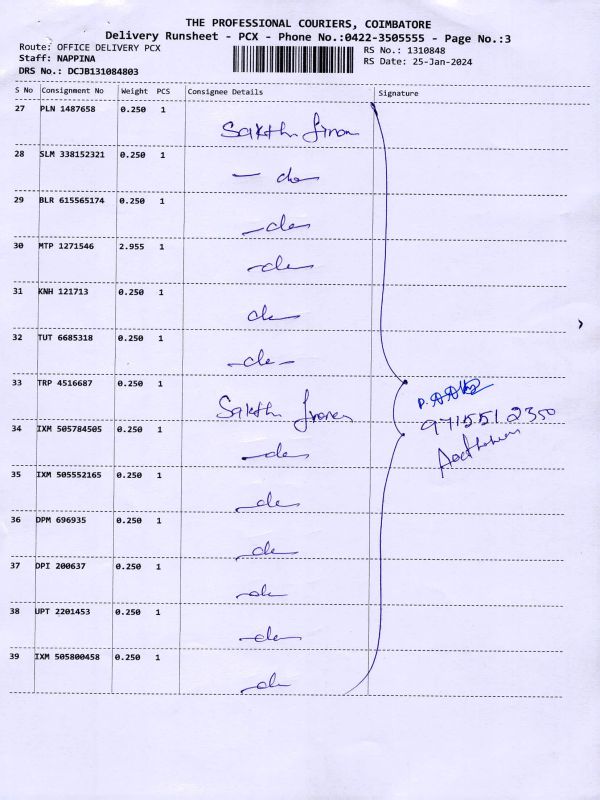 THE PROFESSIONAL COURIERS, COIMBATORE
Delivery Runsheet - PCX - Phone No.:0422-3505555 - Page No.:3
Route: OFFICE DELIVERY PCX
RS No.: 1310848
Staff: NAPPINA
RS Date: 25-Jan-2024
DRS No.: DCJB131084803
S No Consignment No Weight PCS Consignee Details Signature
27 PLN 1487658 0.250 1
Sakthi
28 SLM 338152321 0.250 1
- do
29 BLR 615565174 0.250 1
- do
30 MTP 1271546 2.955 1
- do
31 KNH 121713 0.250 1
do
32 TUT 6685318 0.250 1
- do -
33 TRP 4516687 0.250 1
Sakthi
9715512350
34 IXM 505784505 0.250 1
- do
35 IXM 505552165 0.250 1
- do
36 DPM 696935 0.250 1
- do
37 DPI 200637 0.250 1
- do
38 UPT 2201453 0.250 1
- do
39 IXM 505800458 0.250 1
- do